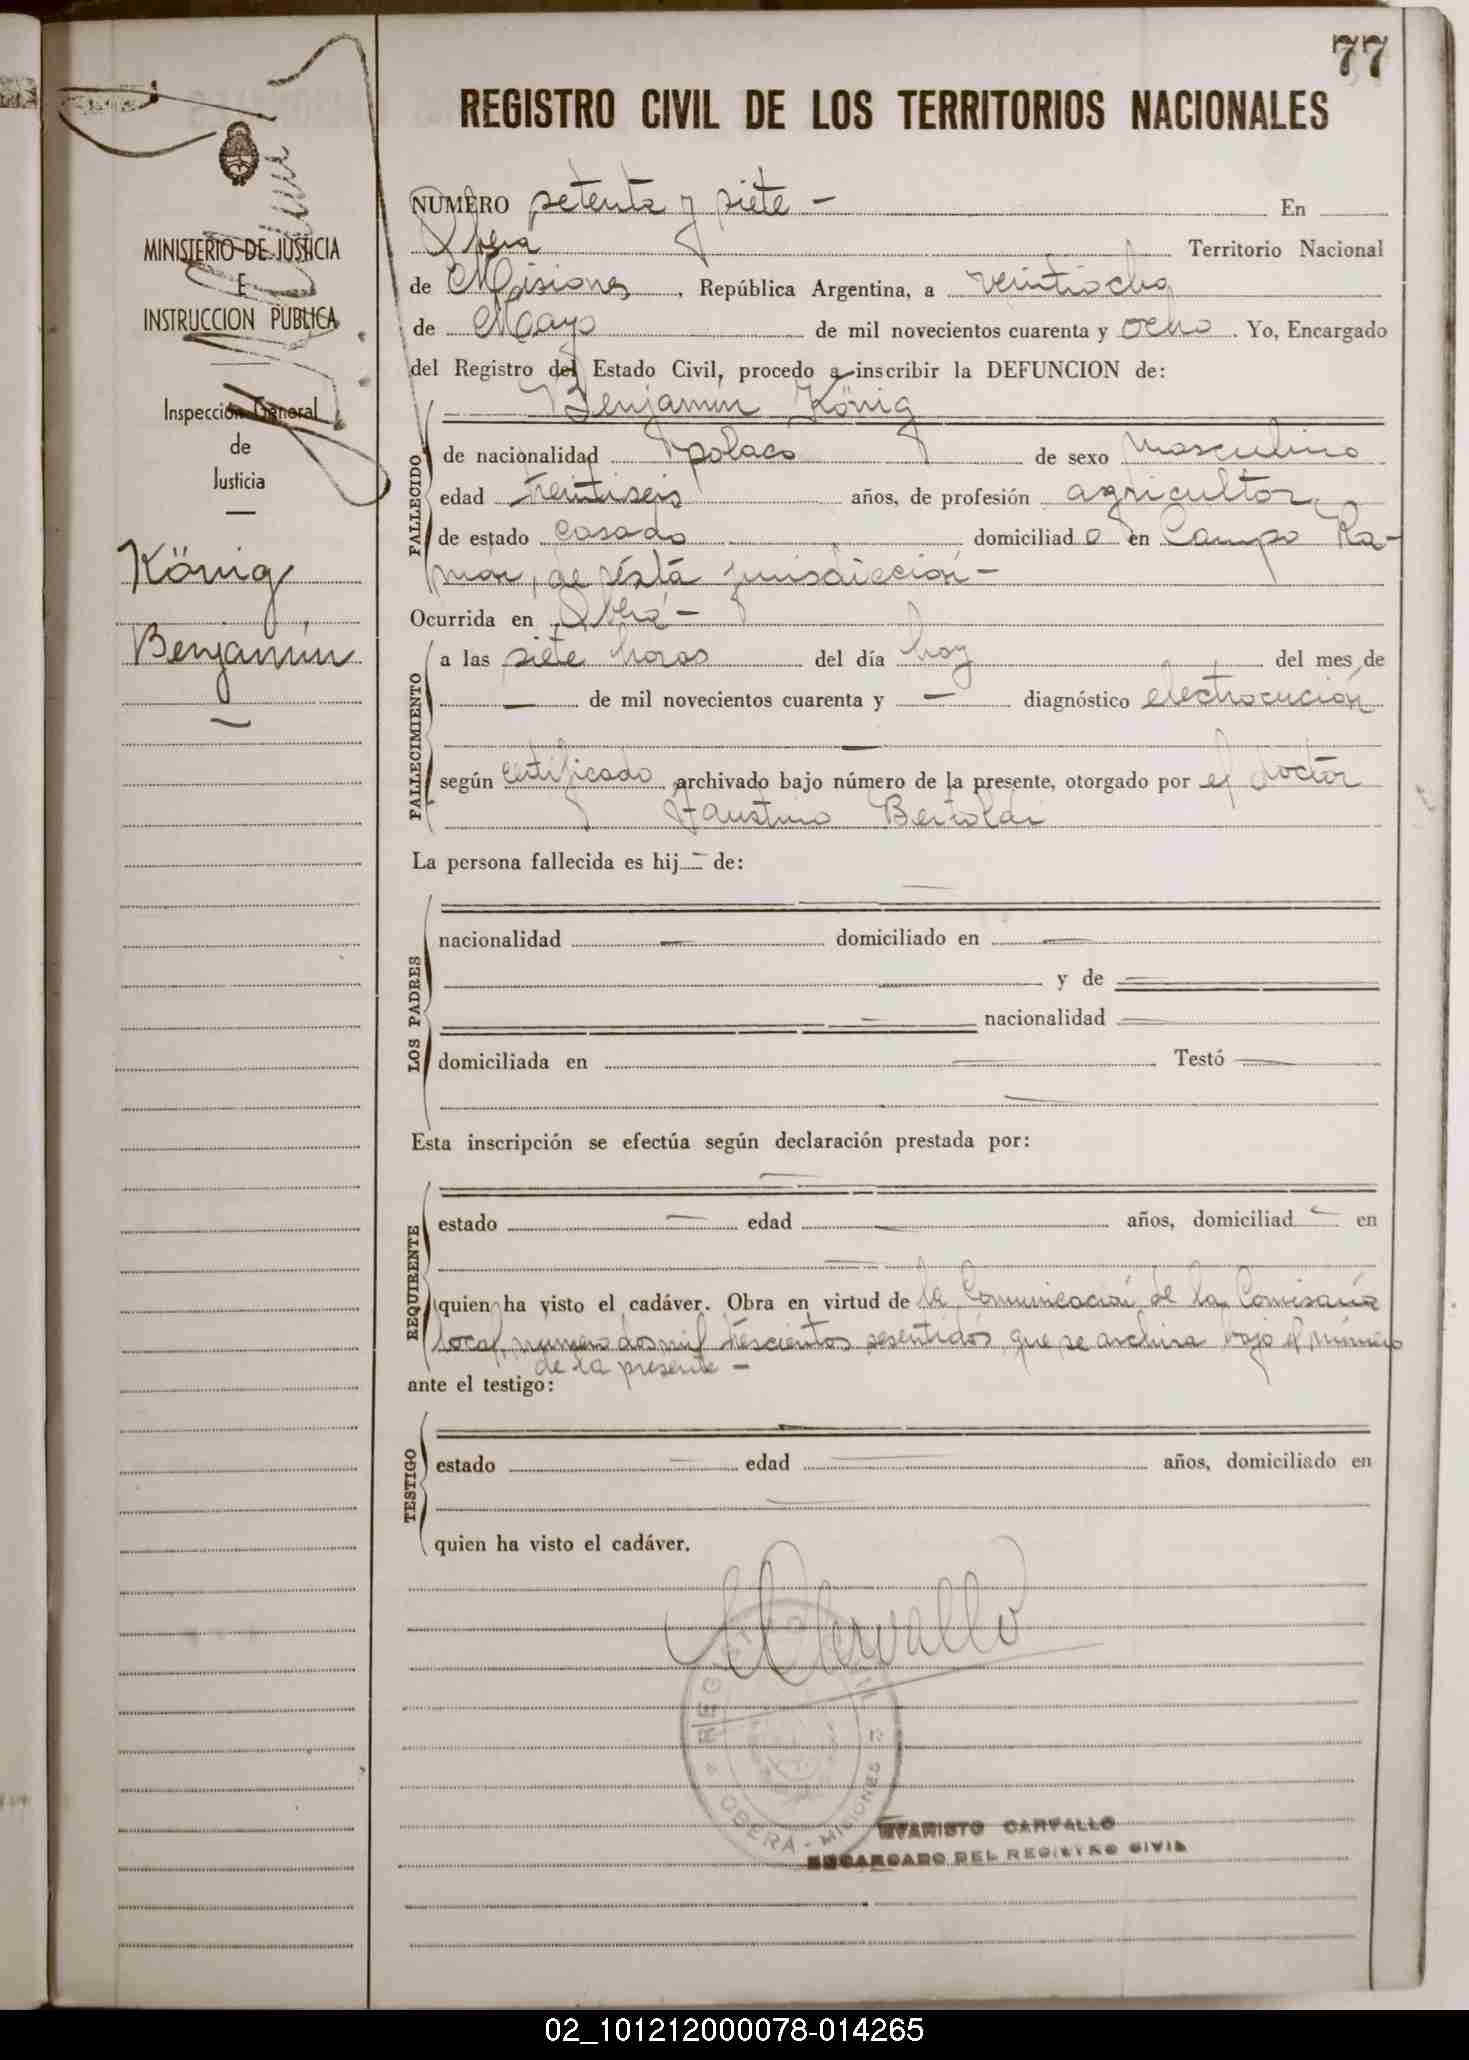 77
REGISTRO CIVIL DE LOS TERRITORIOS NACIONALES
MINISTERIO DE JUSTICIA
E
INSTRUCCION PUBLICA
Inspección General
de
Justicia
König
Benjamín
NUMERO setenta y siete - En
Oberá Territorio Nacional
de Misiones, República Argentina, a veintiocho
de Mayo de mil novecientos cuarenta y ocho. Yo, Encargado
del Registro del Estado Civil, procedo a inscribir la DEFUNCION de:
Benjamin König
FALLECIDO
de nacionalidad polaco de sexo masculino
edad treintiseis años, de profesión agricultor,
de estado casado domiciliado en Campo Ra-
mon, de ésta jurisdicción -
Ocurrida en Oberá -
FALLECIMIENTO
a las siete horas del día hoy del mes de
— de mil novecientos cuarenta y — diagnóstico electrocución
—
según certificado archivado bajo número de la presente, otorgado por el doctor
Faustino Bertoldi
La persona fallecida es hij — de:
LOS PADRES
nacionalidad — domiciliado en —
— y de —
— nacionalidad —
domiciliada en — Testó —
Esta inscripción se efectúa según declaración prestada por:
REQUIRENTE
estado — edad — años, domiciliad — en
—
quien ha visto el cadáver. Obra en virtud de la Comunicación de la Comisaría
local, número dos mil trescientos sesentidos que se archiva bajo el número
de la presente -
ante el testigo:
TESTIGO
estado — edad — años, domiciliado en
—
quien ha visto el cadáver.
Carvallo
REGISTRO CIVIL
OBERA - MISIONES
EVARISTO CARVALLO
ENCARGADO DEL REGISTRO CIVIL
02_101212000078-014265